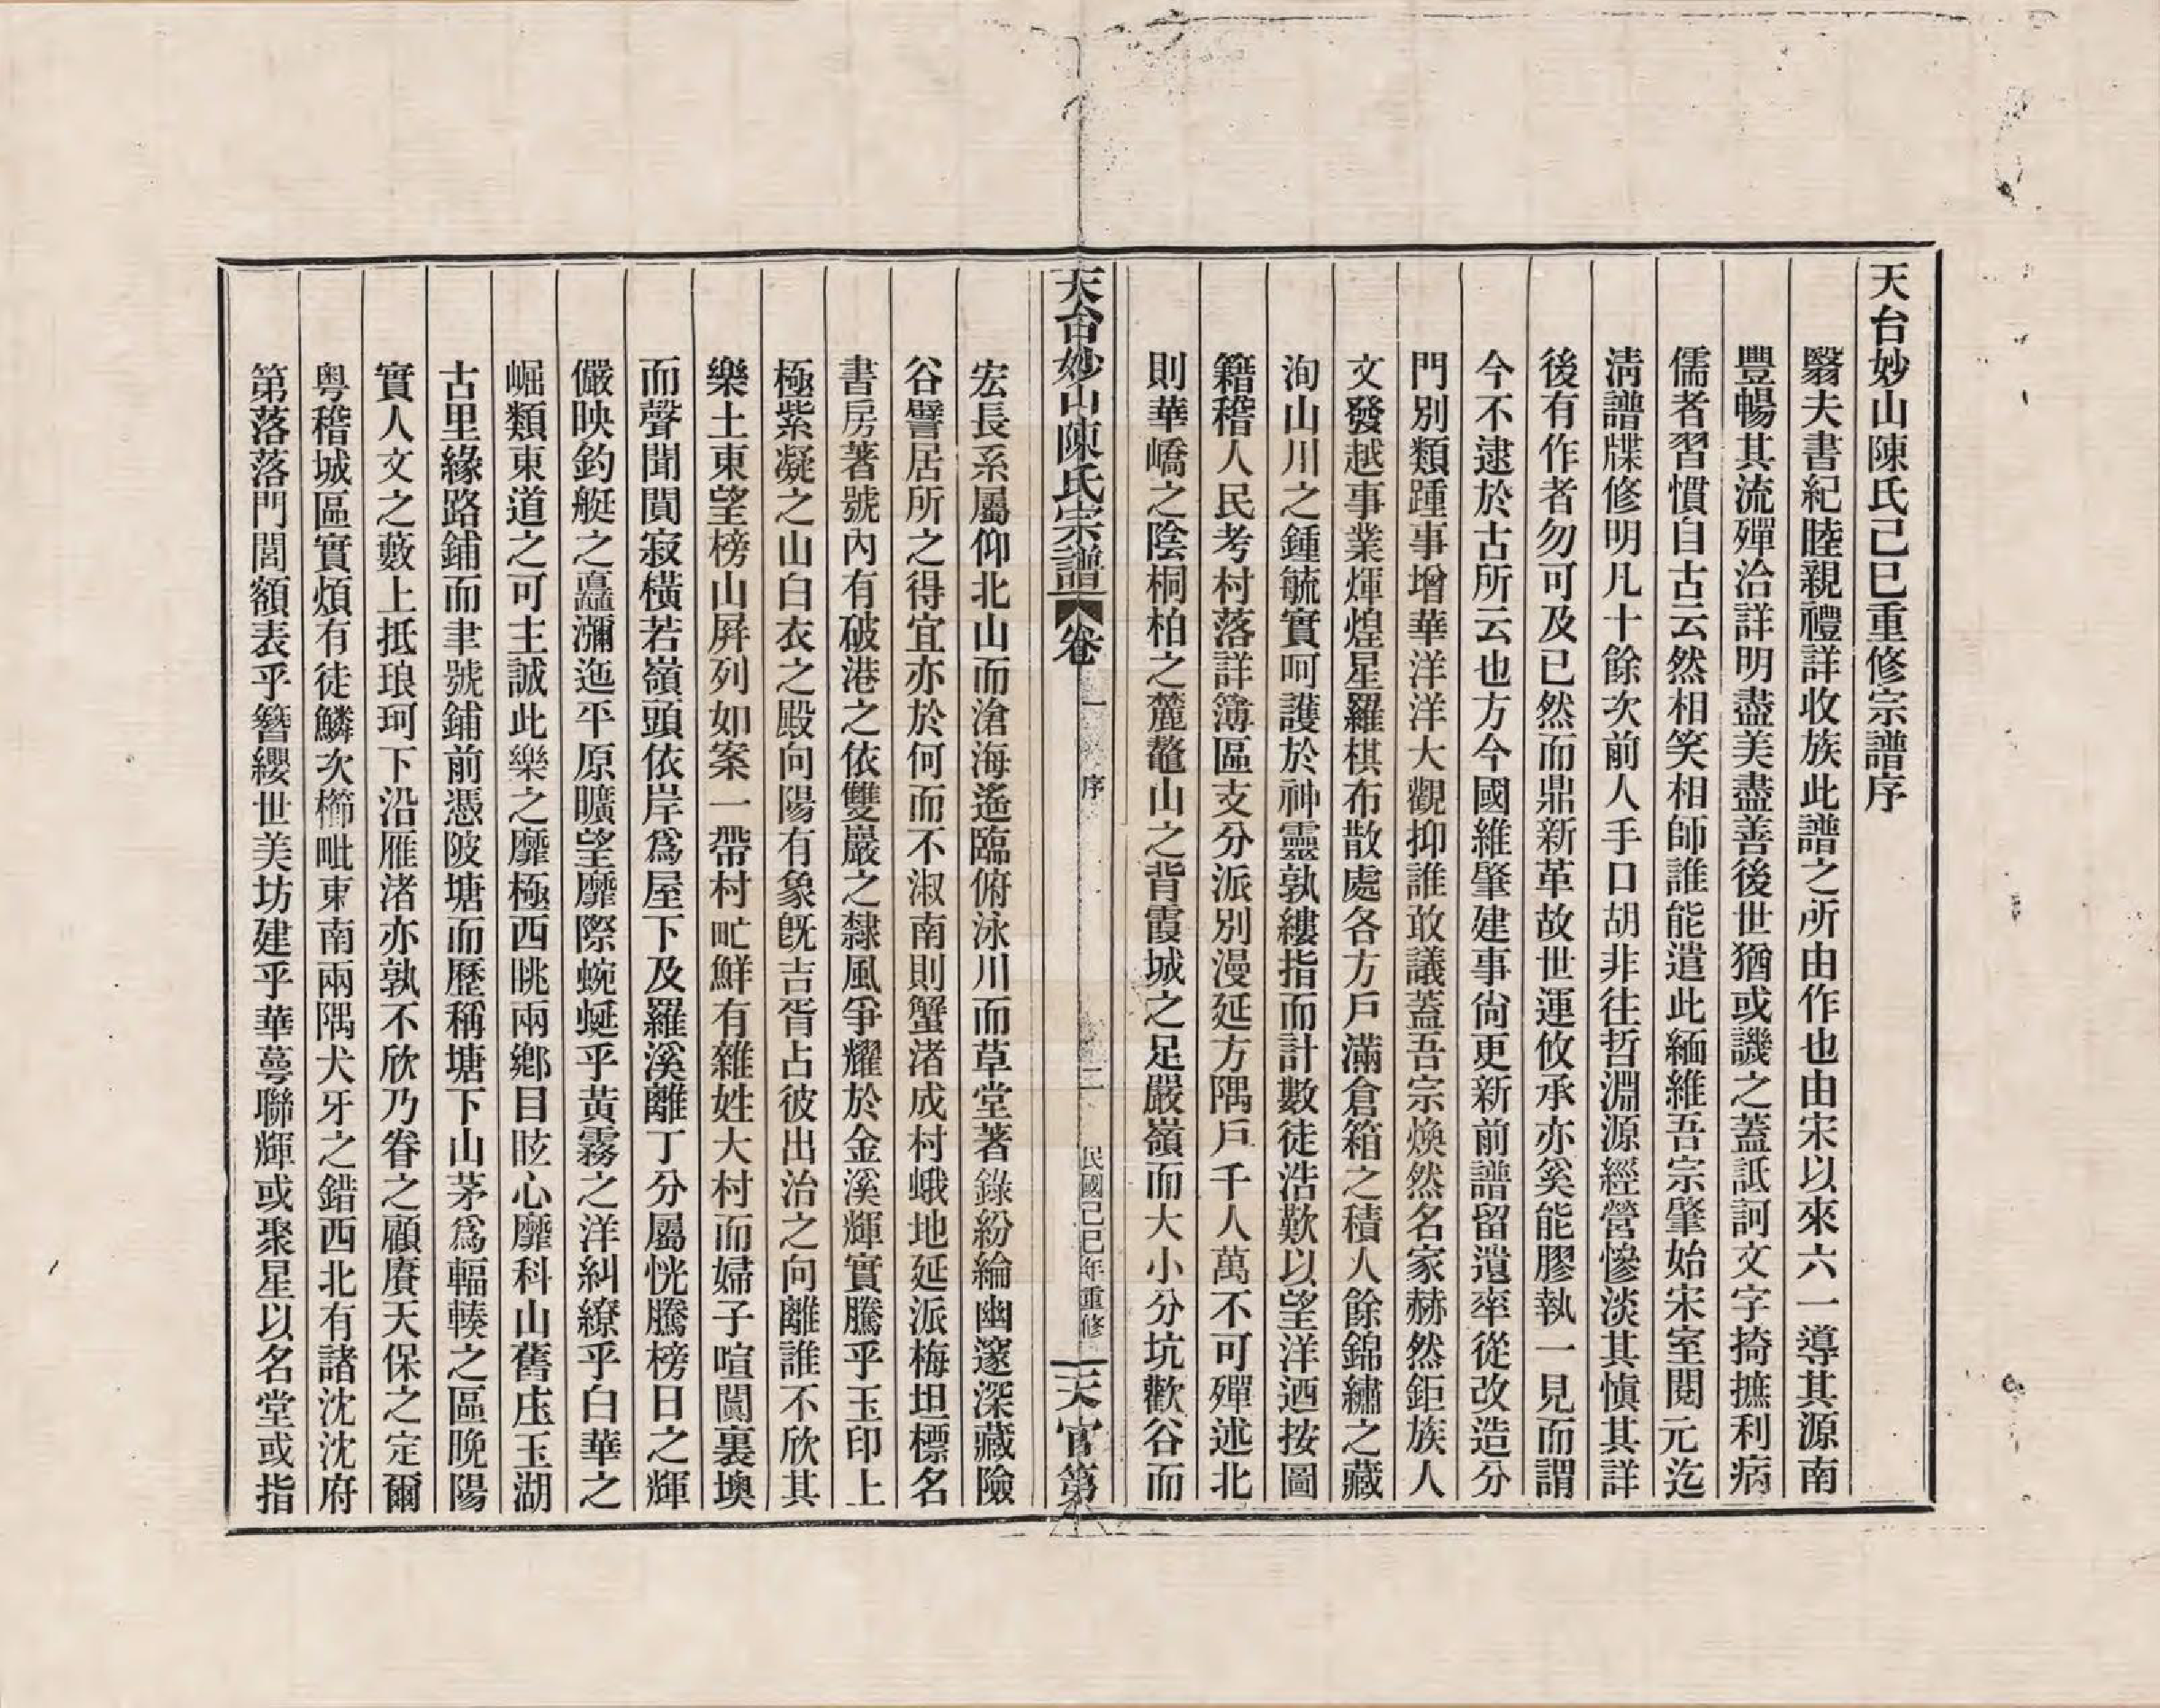 天台妙山陳氏己巳重修宗譜序
翳夫書紀睦親禮詳收族此譜之所由作也由宋以來六一導其源南
豐暢其流殫洽詳明盡美盡善後世猶或譏之蓋詆訶文字掎摭利病
儒者習慣自古云然相笑相師誰能遣此緬維吾宗肇始宋室閱元迄
淸譜牒修明凡十餘次前人手口胡非往哲淵源經營慘淡其愼其詳
後有作者勿可及已然而鼎新革故世運攸承亦奚能膠執一見而謂
今不逮於古所云也方今國維肇建事尙更新前譜留遺率從改造分
門別類踵事增華洋洋大觀抑誰敢議蓋吾宗煥然名家赫然鉅族人
文發越事業煇煌星羅棋布散處各方戶滿倉箱之積人餘錦繡之藏
洵山川之鍾毓實呵護於神靈孰縷指而計數徒浩歎以望洋迺按圖
籍稽人民考村落詳簿區支分派別漫延方隅戶千人萬不可殫述北
則華嶠之陰桐柏之麓鼇山之背霞城之足嚴嶺而大小分坑歡谷而
天台妙山陳氏宗譜 卷一 序 二 民國己巳年重修 天官第
宏長系屬仰北山而滄海遙臨俯泳川而草堂著錄紛綸幽邃深藏險
谷譬居所之得宜亦於何而不淑南則蟹渚成村峨地延派梅坦標名
書房著號內有破港之依雙巖之隸風爭耀於金溪輝實騰乎玉印上
極紫凝之山白衣之殿向陽有象旣吉胥占彼出治之向離誰不欣其
樂土東望榜山屛列如案一帶村甿鮮有雜姓大村而婦子喧闐裏墺
而聲聞闃寂橫若嶺頭依岸爲屋下及羅溪離丁分屬恍騰榜日之輝
儼映釣艇之矗瀰迤平原曠望靡際蜿蜒乎黃霧之洋糾繚乎白華之
崛類東道之可主誠此樂之靡極西眺兩鄕目眩心靡科山舊庄玉湖
古里緣路鋪而聿號鋪前憑陂塘而歷稱塘下山茅爲輻輳之區晚陽
實人文之藪上抵琅珂下沿雁渚亦孰不欣乃眷之顧賡天保之定爾
粤稽城區實煩有徒鱗次櫛毗東南兩隅犬牙之錯西北有諸沈沈府
第落落門閭額表乎簪纓世美坊建乎華萼聯輝或聚星以名堂或指